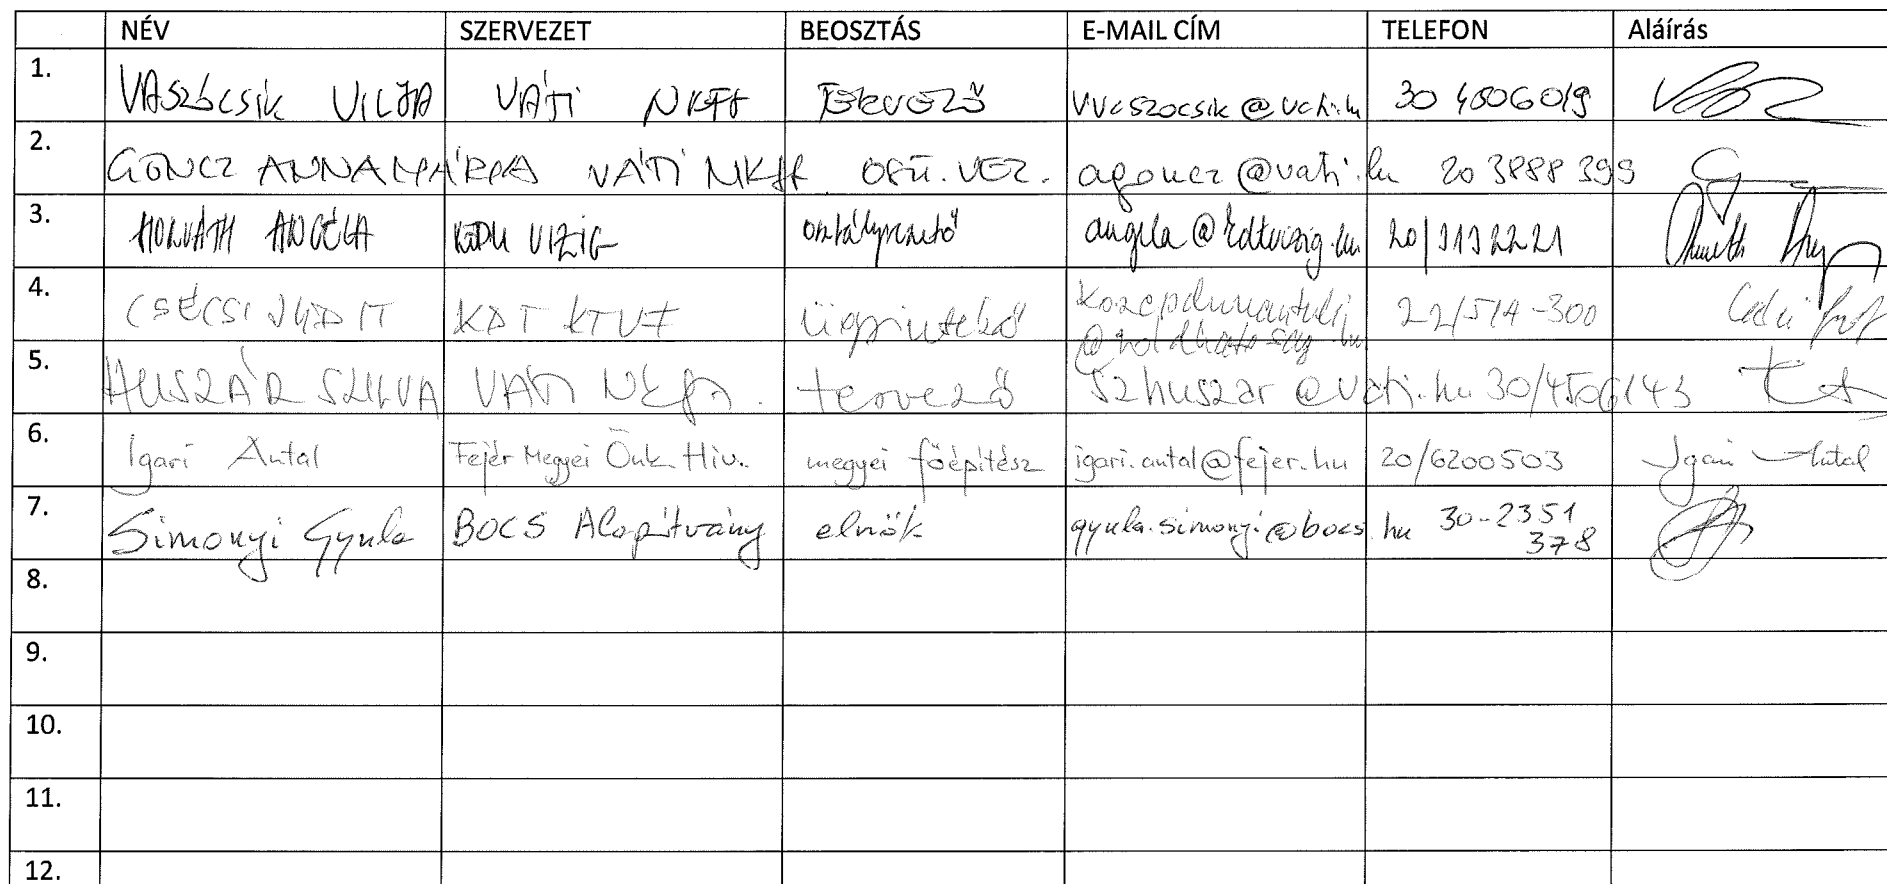 NÉV SZERVEZET BEOSZTÁS E-MAIL CÍM TELEFON Aláírás
1. VASZÓCSIK VILJA VÁTI NKFT TERVEZŐ vvaszocsik@vati.hu 30 4506019
2. GÖNCZ ANNAMÁRIA VÁTI NKft. OSZT. VEZ. agoncz@vati.hu 20 3888 399
3. HORVÁTH ANGÉLA KDU VIZIG osztályvezető angela@kdtvizig.hu 20/3132221
4. CSÉCSI JUDIT KDT KTVF ügyintéző kozepdunantuli
@zoldhatosag.hu 22/514-300
5. HUSZÁR SZILVIA VÁTI NKft. tervező szhuszar@vati.hu 30/4506143
6. Igari Antal Fejér Megyei Önk. Hiv. megyei főépítész igari.antal@fejer.hu 20/6200503 Igari Antal
7. Simonyi Gyula BOCS Alapítvány elnök gyula.simonyi@bocs.hu 30-2351
378
8.
9.
10.
11.
12.